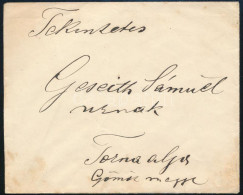 Tekintetes
Geseith Sámuel
urnak
Tornalja
Gömör megye